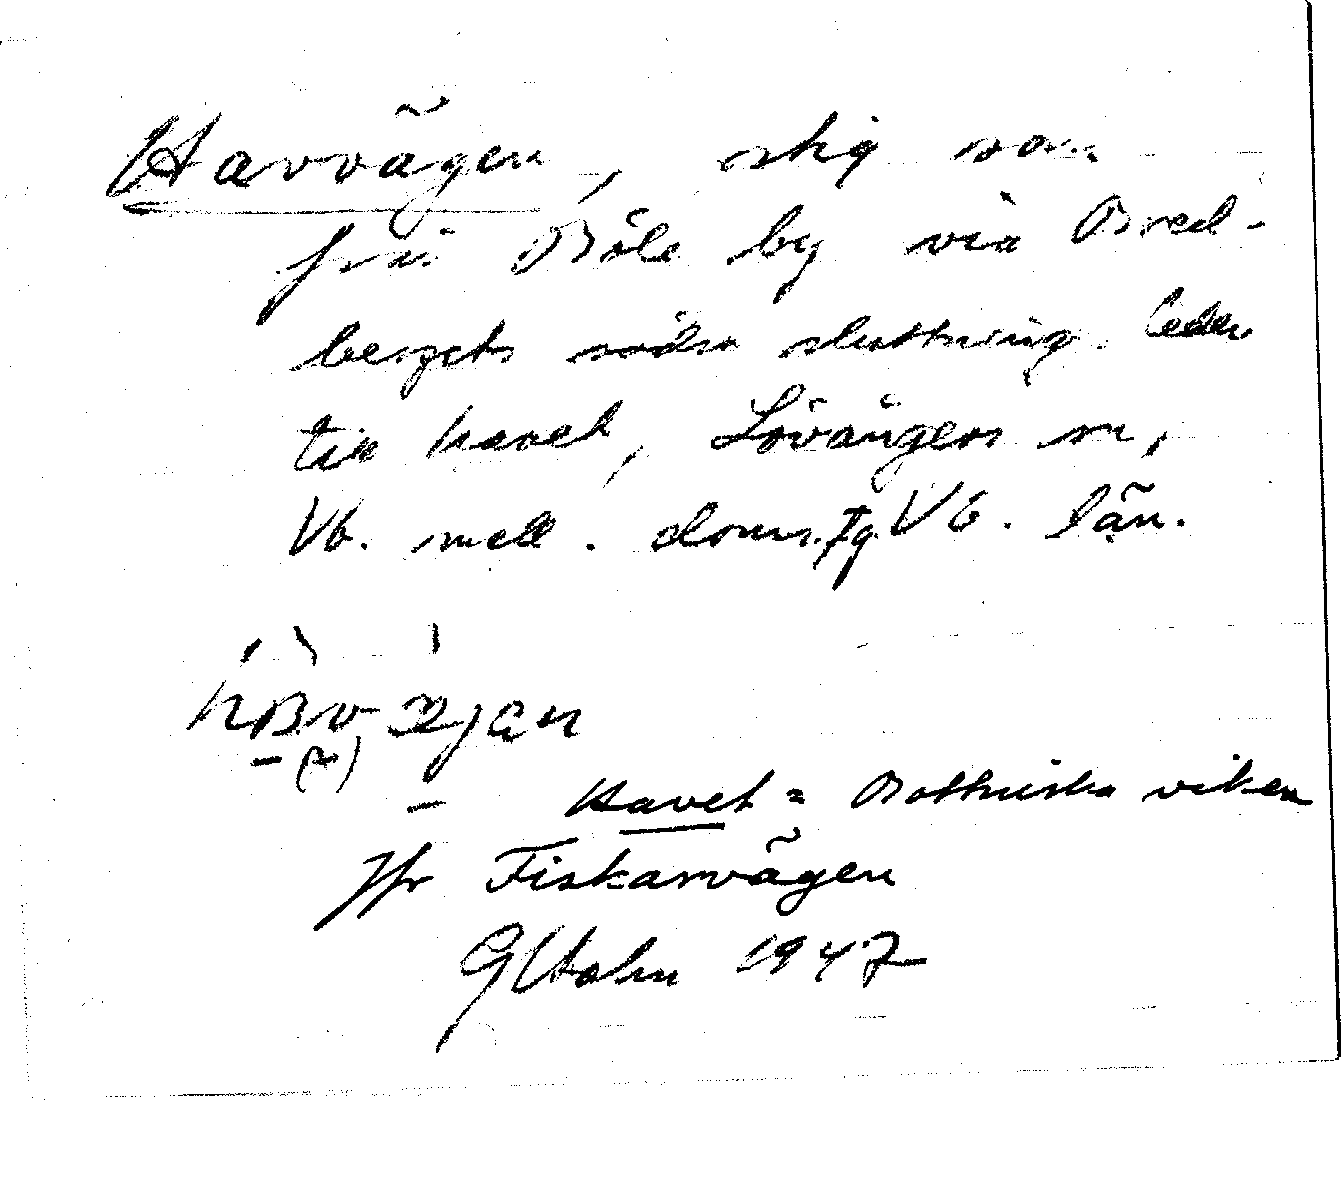 Havvägen, stig som
från Böle by via Bred-
bergets södra sluttning leder
till havet, Lövångers sn,
Vb. mell. doms.fg. Vb. län.
Havet = Bottniska viken
Jfr Fiskarvägen
G Holm 1947